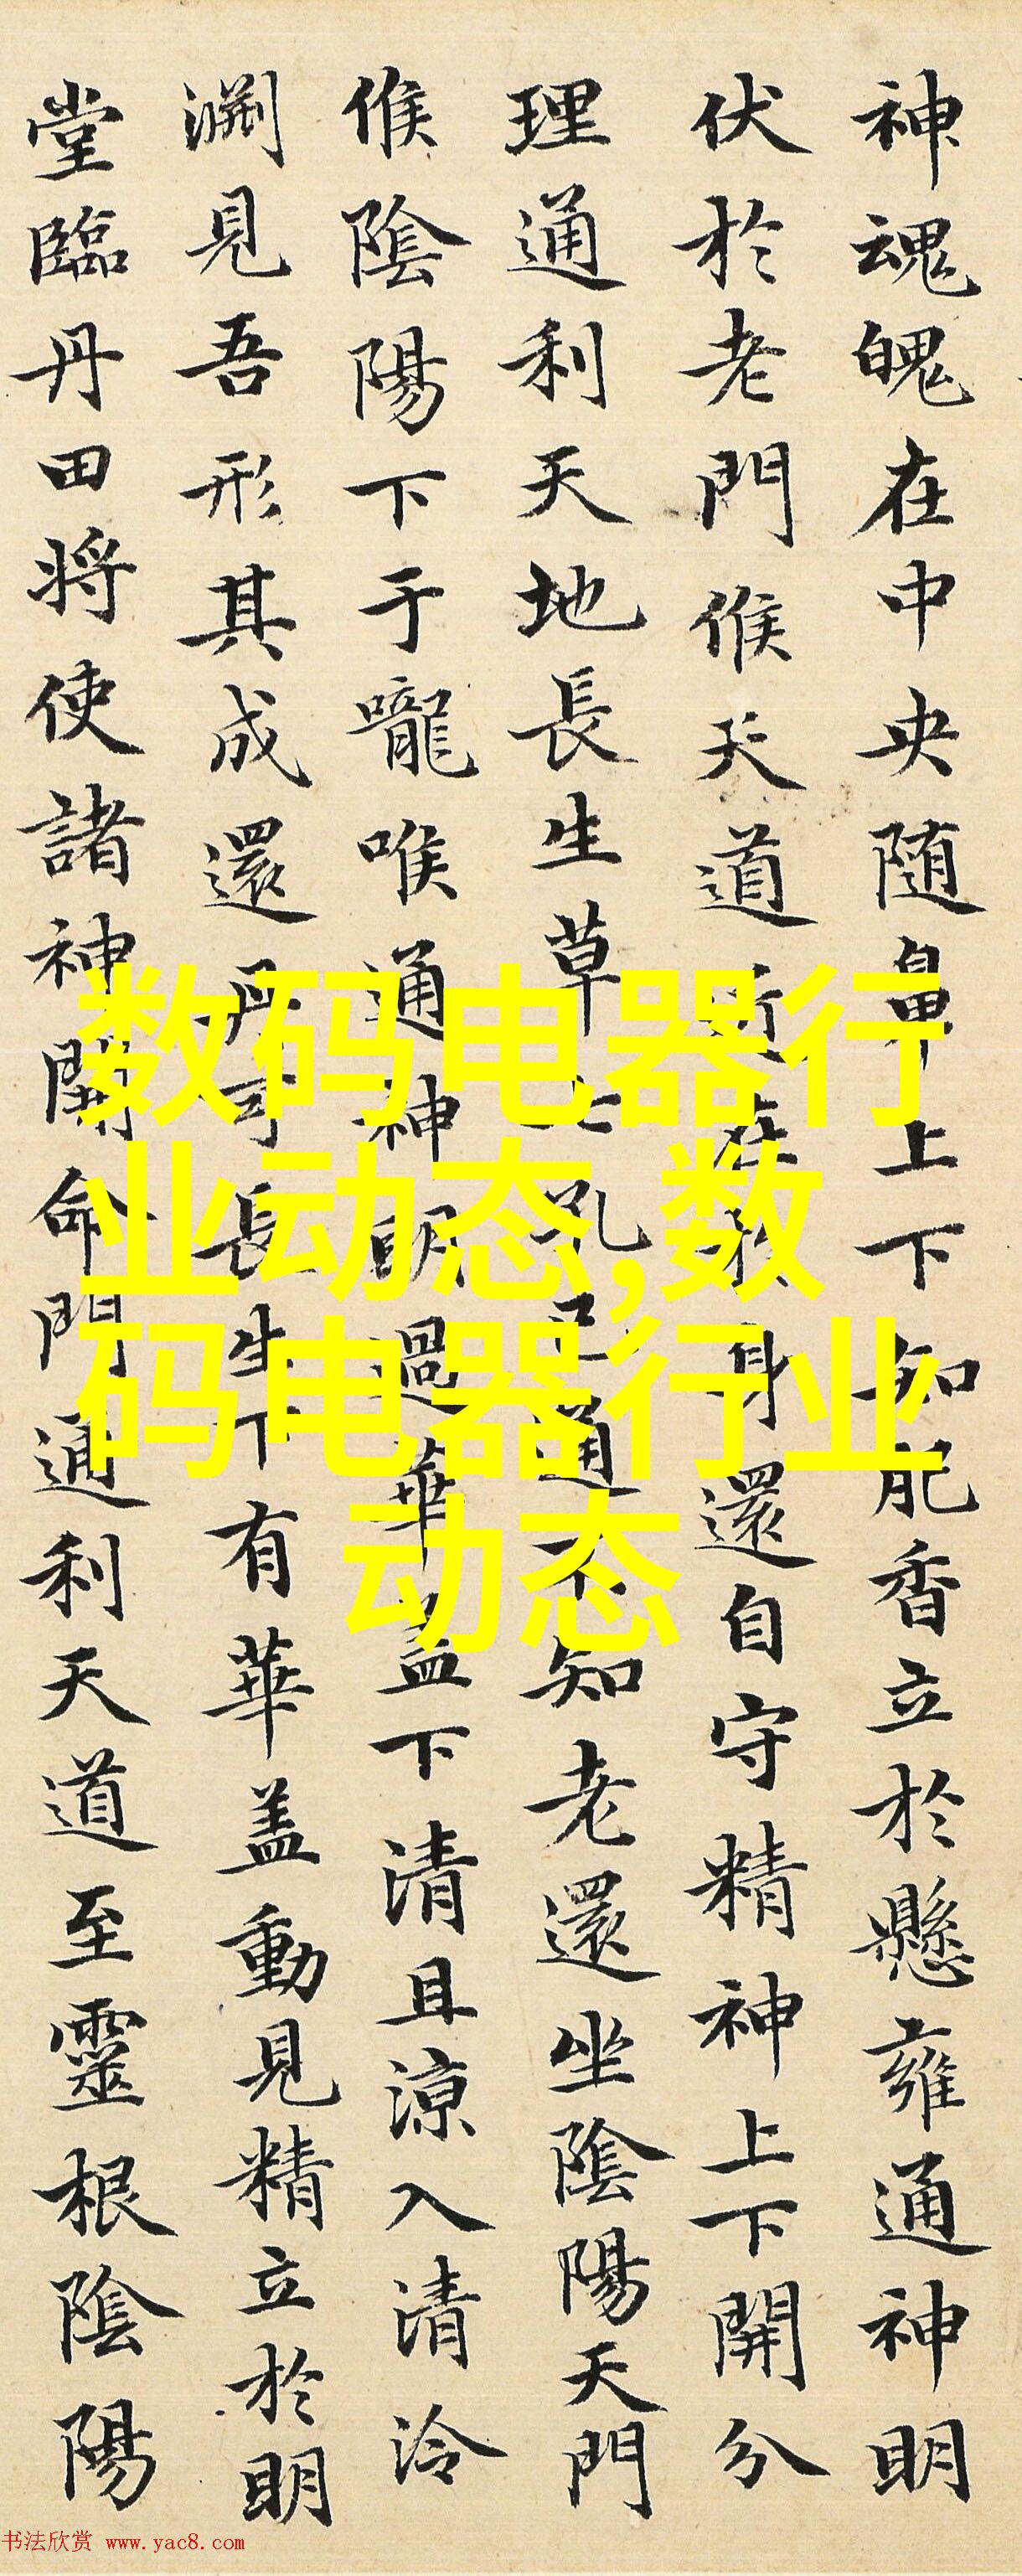 神魂魄在中央随鼻上下知肥香立於懸雍通神明
伏於老門候天道近在於身還自守精神上下開分
理通利天地長生草七孔已通不知老還坐陰陽天門
候陰陽下于嚨喉通神明過華蓋下清且涼入清泠
淵見吾形其成還丹可長生下有華盖動見精立於明
堂臨丹田将使諸神開命門通利天道至靈根陰陽
数码电器行
业动态,数
码电器行业
动态
书法欣赏 www.yac8.com